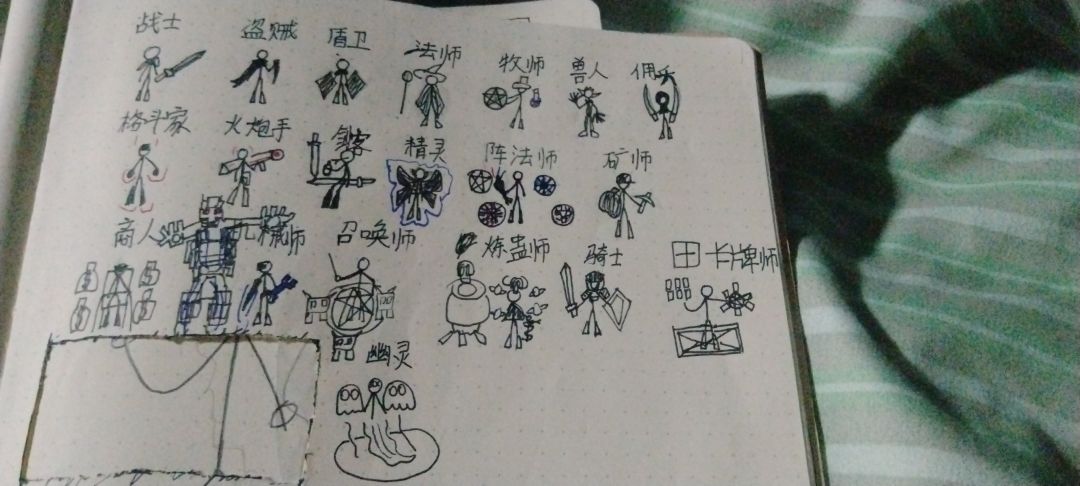 战士 盗贼 盾卫 法师 牧师 兽人 佣兵
格斗家 火炮手 剑客 精灵 阵法师 矿师
商人 机械师 召唤师 炼蛊师 骑士 田 卡牌师
幽灵